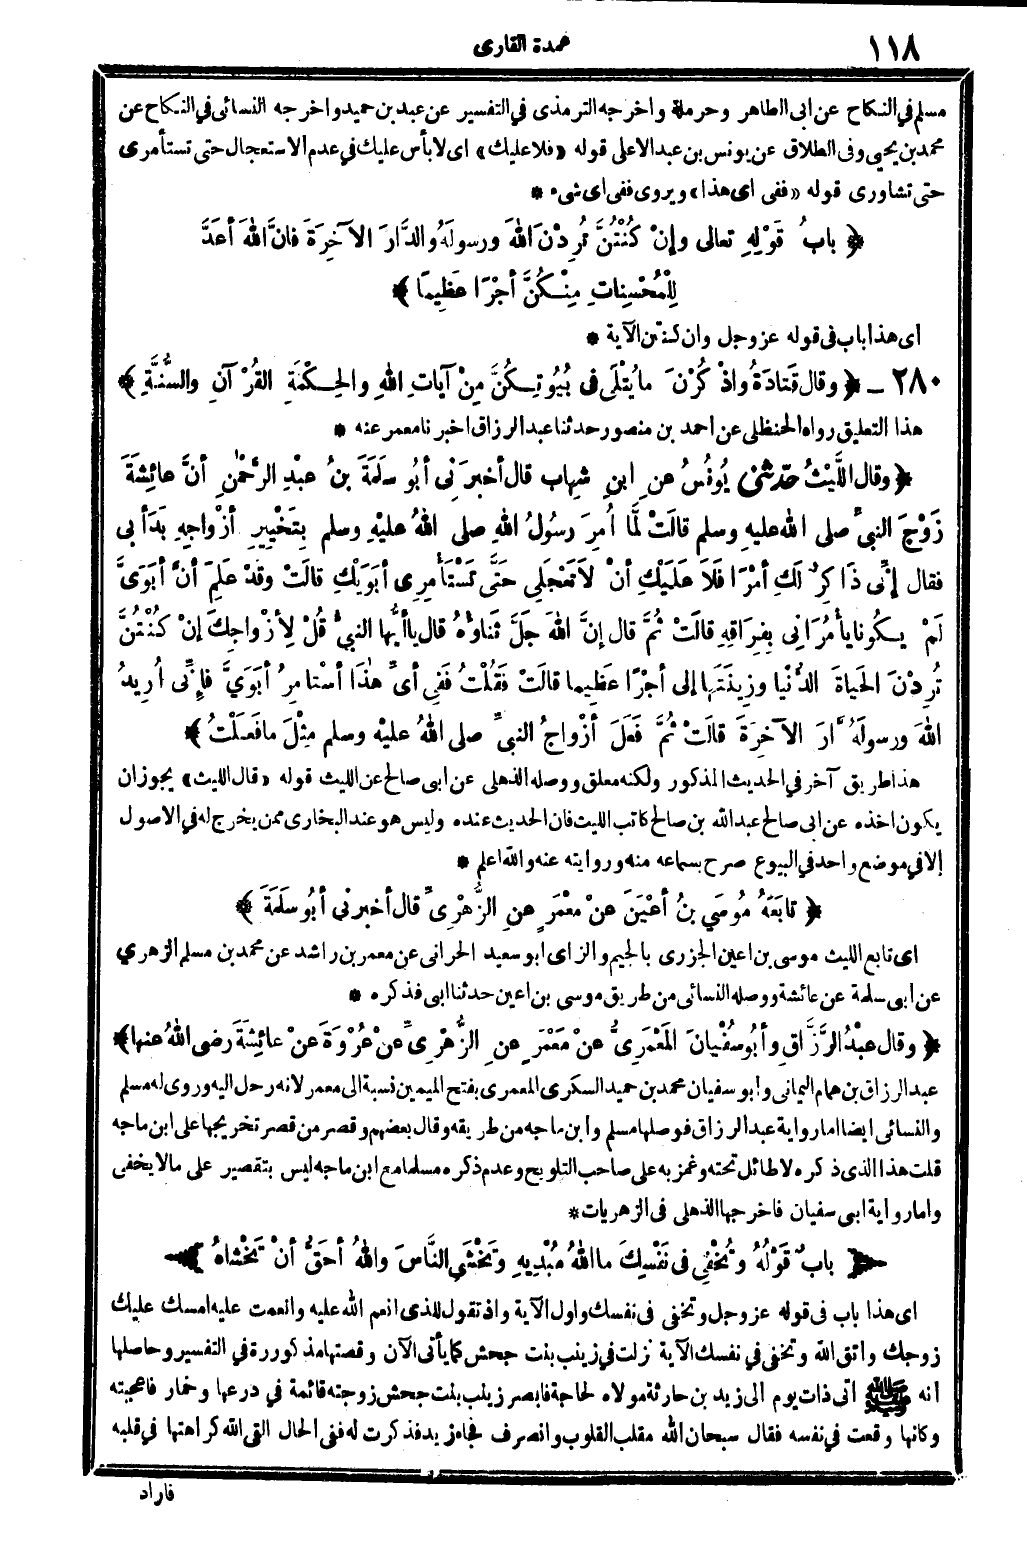 ١١٨
عمدة القارى
مسلم في النكاح عن ابى الطاهر وحرملة واخرجه الترمذى في التفسير عن عبد بن حميد واخرجه النسائى في النكاح عن
محمد بن يحيى وفى الطلاق عن يونس بن عبد الاعلى قوله «فلا عليك» اى لا بأس عليك في عدم الاستعجال حتى تستأمرى
حتى تشاورى قوله «ففى اى هذا» ويروى ففى اى شىء *
﴿ بابُ قَوْلِهِ تعالى وإنْ كُنْتُنَّ تُرِدْنَ اللهَ ورسولَهُ والدَّارَ الآخِرَةَ فانَّ اللهَ أعَدَّ
لِلْمُحْسِناتِ مِنْكُنَّ أجْرًا عَظِيمًا ﴾
اى هذا باب فى قوله عز وجل وان كنتن الآية *
٢٨٠ ـ ﴿ وقال قَتادَةُ واذْكُرْنَ ما يُتْلَى فى بُيُوتِكُنَّ مِنْ آياتِ اللهِ والحِكْمَةِ القُرْآنِ والسُّنَّةِ ﴾
هذا التعليق رواه الحنظلى عن احمد بن منصور حدثنا عبد الرزاق اخبرنا معمر عنه *
﴿ وقال اللَّيْثُ حدّثني يُونُسُ عنِ ابنِ شِهاب قال أخبرَنى أبُو سلَمَةَ بنُ عبْدِ الرَّحْمٰنِ أنَّ عائِشَةَ
زَوْجَ النبىِّ صلى الله عليه وسلم قالَتْ لَمَّا أُمِرَ رسُولُ اللهِ صلى اللهُ عليْهِ وسلم بِتَخْيِيرِ أزْواجِهِ بَدَأ بى
فقال إنِّى ذَاكِرٌ لَكِ أمْرًا فَلاَ عَلَيْكِ أنْ لاَ تَعْجَلِى حَتَّى تَسْتَأْمِرِى أبَوَيْكِ قالَتْ وقَدْ عَلِمَ أنَّ أبَوَىَّ
لَمْ يكُونا يأْمُرَانِى بِفِرَاقِهِ قالَتْ ثُمَّ قال إنَّ اللهَ جَلَّ ثَناؤُهُ قال ياأيُّها النبىُّ قُلْ لِأزْواجِكَ إنْ كُنْتُنَّ
تُرِدْنَ الحَياةَ الدُّنْيا وزِينَتَها إلى أجْرًا عَظِيما قالَتْ فَقُلْتُ فَفِى أىِّ هٰذَا أسْتَأمِرُ أبَوَيَّ فإنِّى أُرِيدُ
اللهَ ورسولَهُ َّارَ الآخِرَةَ قالَتْ ثُمَّ فَعَلَ أزْواجُ النبىِّ صلى اللهُ عليْه وسلم مِثْلَ ما فعَلْتُ ﴾
هذا طريق آخر في الحديث المذكور ولكنه معلق ووصله الذهلى عن ابى صالح عن الليث قوله «قال الليث» يجوز ان
يكون اخذه عن ابى صالح عبد الله بن صالح كاتب الليث فان الحديث عنده وليس هو عند البخارى ممن يخرج له في الاصول
إلا في موضع واحد في البيوع صرح بسماعه منه وروايته عنه والله اعلم *
﴿ تابَعَهُ مُوسَي بنُ أعْيَنَ عنْ معْمَرٍ عنِ الزُّهْرِىِّ قال أخبرنى أبُو سلَمَةَ ﴾
اى تابع الليث موسى بن اعين الجزرى بالجيم والزاى ابو سعيد الحرانى عن معمر بن راشد عن محمد بن مسلم الزهري
عن ابى سلمة عن عائشة ووصله النسائى من طريق موسى بن اعين حدثنا ابى فذكره *
﴿ وقال عبْدُ الرَّزَّاقِ وأبُو سُفْيانَ المَعْمَرِىُّ عنْ معْمَرٍ عنِ الزُّهْرِىِّ عنْ عُرْوَةَ عنْ عائِشَةَ رضى اللهُ عنها ﴾
عبد الرزاق بن همام اليمانى وابو سفيان محمد بن حميد السكرى المعمرى بفتح الميمين نسبة الى معمر لانه رحل اليه وروى له مسلم
والنسائى ايضا اما رواية عبد الرزاق فوصلها مسلم وابن ماجه من طريقه وقال بعضهم وقصر من قصر تخريجها على ابن ماجه
قلت هذا الذى ذكره لا طائل تحته وغمز به على صاحب التلويح وعدم ذكره مسلما مع ابن ماجه ليس بتقصير على مالا يخفى
واما رواية ابى سفيان فاخرجها الذهلى فى الزهريات *
﴿ بابٌ قَوْلُهُ وتُخْفِي فى نَفْسِكَ ما اللهُ مُبْدِيهِ وتَخْشَي النَّاسَ واللهُ أحَقُّ أنْ تَخْشاهُ ﴾
اى هذا باب فى قوله عز وجل وتخفى فى نفسك واول الآية واذ تقول للذى انعم الله عليه وانعمت عليه امسك عليك
زوجك واتق الله وتخفى في نفسك الآية نزلت في زينب بنت جحش كما يأتى الآن وقصتها مذكورة في التفسير وحاصلها
انه ﷺ اتى ذات يوم الى زيد بن حارثة مولاه لحاجة فابصر زينب بنت جحش زوجته قائمة في درعها وخمار فاعجبته
وكانها وقعت في نفسه فقال سبحان الله مقلب القلوب وانصرف فجاء زيد فذكرت له ففى الحال القى الله كراهتها في قلبه
فاراد